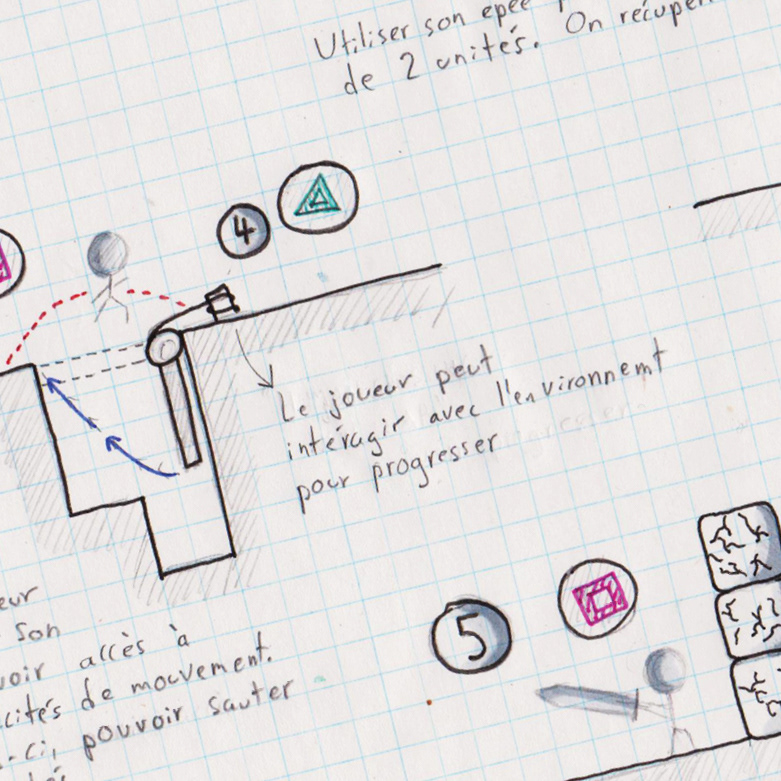 Utiliser son épée
de 2 unités. On
4
Le joueur peut
intéragir avec l'environnemt
pour progresser
son
accès à
de mouvement.
pouvoir sauter
5